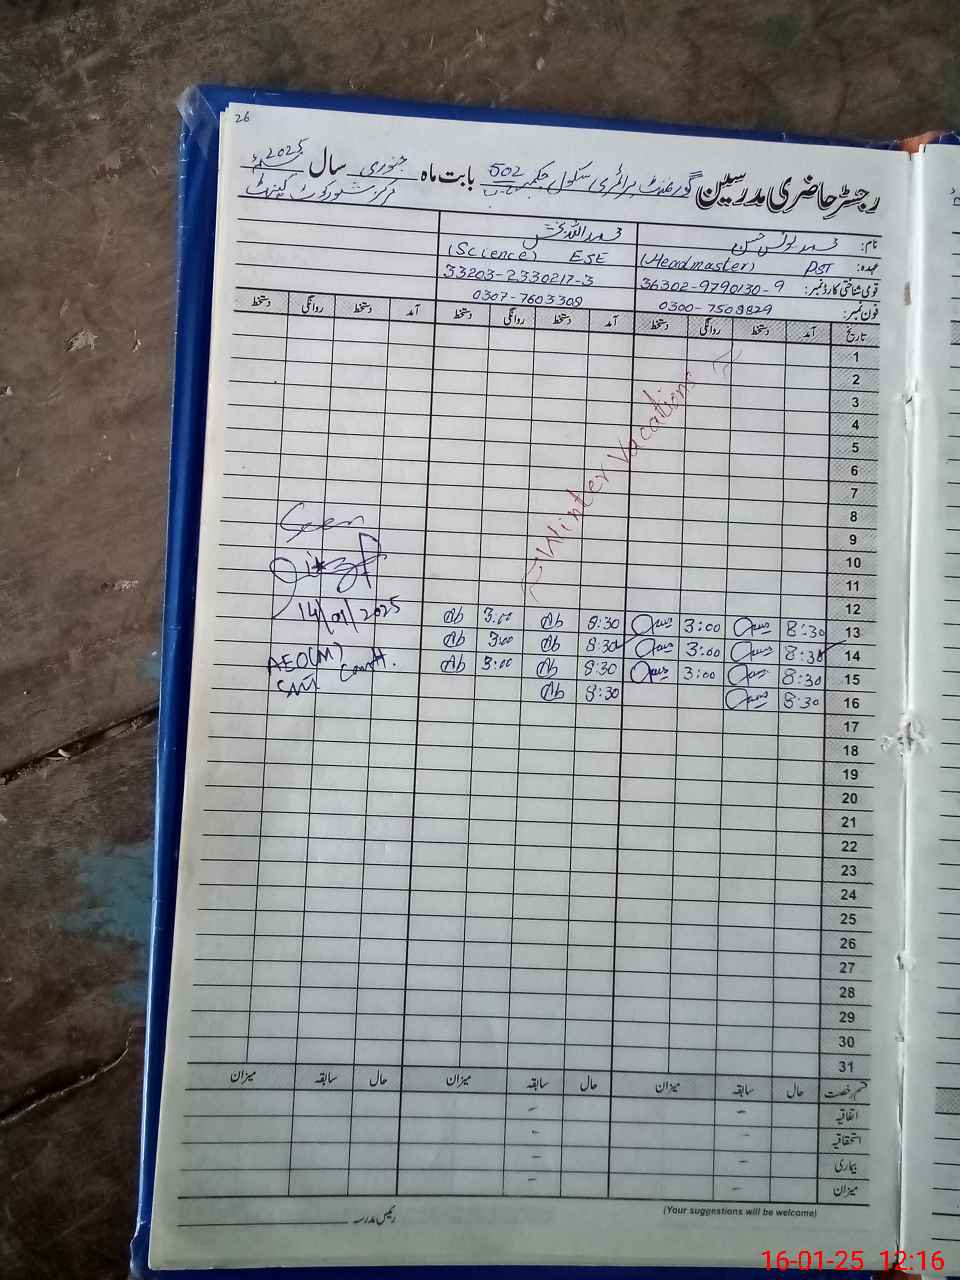 26
رجسٹر حاضری مدرسین گورنمنٹ پرائمری سکول چک نمبر 502 بابت ماہ جنوری سال 2025
مرکز شورکوٹ کینٹ
نام: محمد یونس حسن محمد اللہ بخش
عہدہ: PST (Headmaster) ESE (Science)
قومی شناختی کارڈ نمبر: 36302-9790130-9 33203-2330217-3
فون نمبر: 0300-7508829 0307-7603309
تاریخ آمد دستخط روانگی دستخط آمد دستخط روانگی دستخط آمد دستخط روانگی دستخط
1
2
3
4
5
6
7
8
9
10
11
12
Winter Vacations
13 8:30 3:00 8:30 3:00
14 8:30 3:00 8:30 3:00
15 8:30 3:00 8:30 3:00
16 8:30 8:30
17
18
19
20
21
22
23
24
25
26
27
28
29
30
31
Seen
14/01/2025
AEO(M)
قسم رخصت حال سابقہ میزان حال سابقہ میزان حال سابقہ میزان
اتفاقیہ - -
استحقاقیہ - -
بیماری - -
میزان - -
رئیس مدرسہ
(Your suggestions will be welcome)
16-01-25 12:16